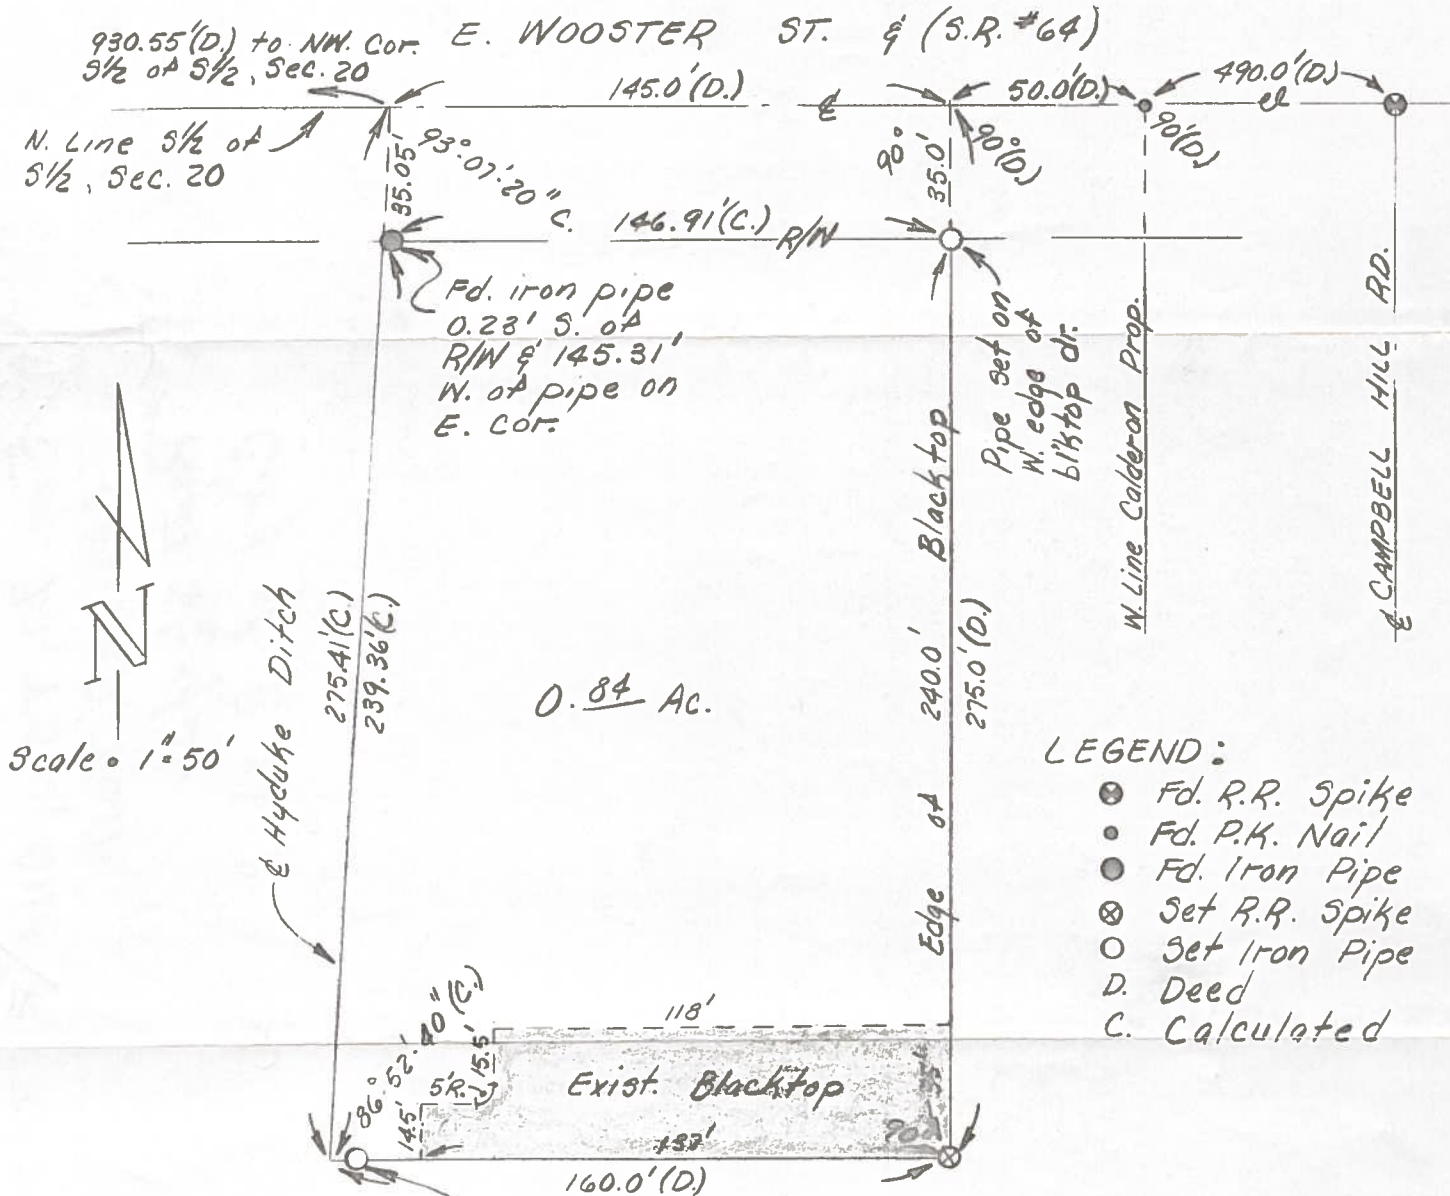 930.55'(D.) to NW. Cor.
S½ of S½, Sec. 20
E. WOOSTER ST. & (S.R. #64)
145.0'(D.)
℄
50.0'(D.)
490.0'(D.)
℄
N. Line S½ of
S½, Sec. 20
35.05'
93°-07'-20"
C.
90°
35.0'
90°(D.)
90°(D.)
146.91'(C.) R/W
Fd. iron pipe
0.23' S. of
R/W & 145.31'
W. of pipe on
E. Cor.
Pipe set on
W. edge of
blktop dr.
W. Line Calderon Prop.
℄ CAMPBELL HILL RD.
N
Scale: 1"=50'
℄ Hyduke Ditch
275.41'(C.)
239.36'(C.)
0.84 Ac.
Edge of Blacktop
240.0'
275.0'(D.)
LEGEND:
Fd. R.R. Spike
Fd. P.K. Nail
Fd. Iron Pipe
Set R.R. Spike
Set Iron Pipe
D. Deed
C. Calculated
86°-52'-40"(C.)
118'
15.5'
5'R.
14.5'
Exist. Blacktop
35'
137'
90°
160.0'(D.)